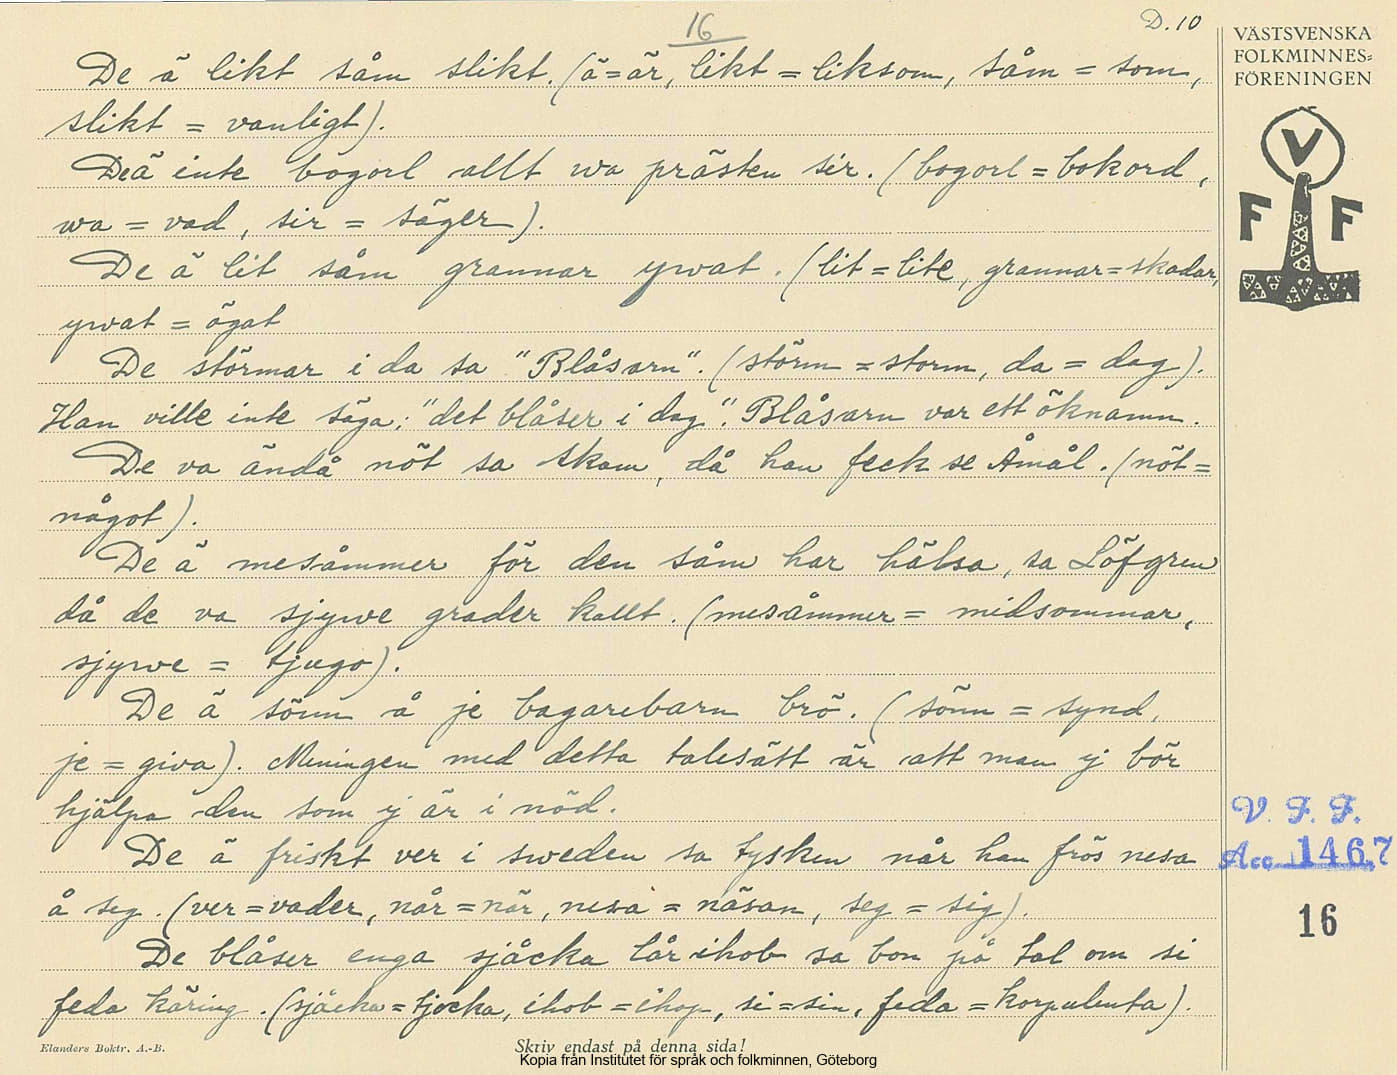 16
D. 10
VÄSTSVENSKA
FOLKMINNES-
FÖRENINGEN
V
F F
De ä likt såm slikt. (ä=är, likt = liksom, såm = som,
slikt = vanligt).
De ä inte bogorl allt wa prästen sir. (bogorl = bokord,
wa = vad, sir = säger).
De ä lit såm grannar ywat. (lit = lite, grannar = skadar,
ywat = ögat
De störmar i da sa "Blåsarn". (störm = storm, da = dag).
Han ville inte säga: "det blåser i dag". Blåsarn var ett öknamn.
De va ändå nöt sa skam, då han feck se Åmål. (nöt =
något).
De ä mesåmmer för den såm har hälsa, sa Löfgren
då de va sjywe grader kallt. (mesåmmer = midsommar,
sjywe = tjugo).
De ä sönn å je bagarebarn brö. (sönn = synd,
je = giva). Meningen med detta talesätt är att man ej bör
hjälpa den som ej är i nöd.
De ä friskt ver i sweden sa tysken når han frös nesa
å seg. (ver = vader, når = när, nesa = näsan, seg = sig).
De blåser enga sjåcka lår ihob sa bon på tal om si
feda käring. (sjåcka = tjocka, ihob = ihop, si = sin, feda = korpulenta).
V. F. F.
Acc. 1467
16
Elanders Boktr. A.-B.
Skriv endast på denna sida!
Kopia från Institutet för språk och folkminnen, Göteborg